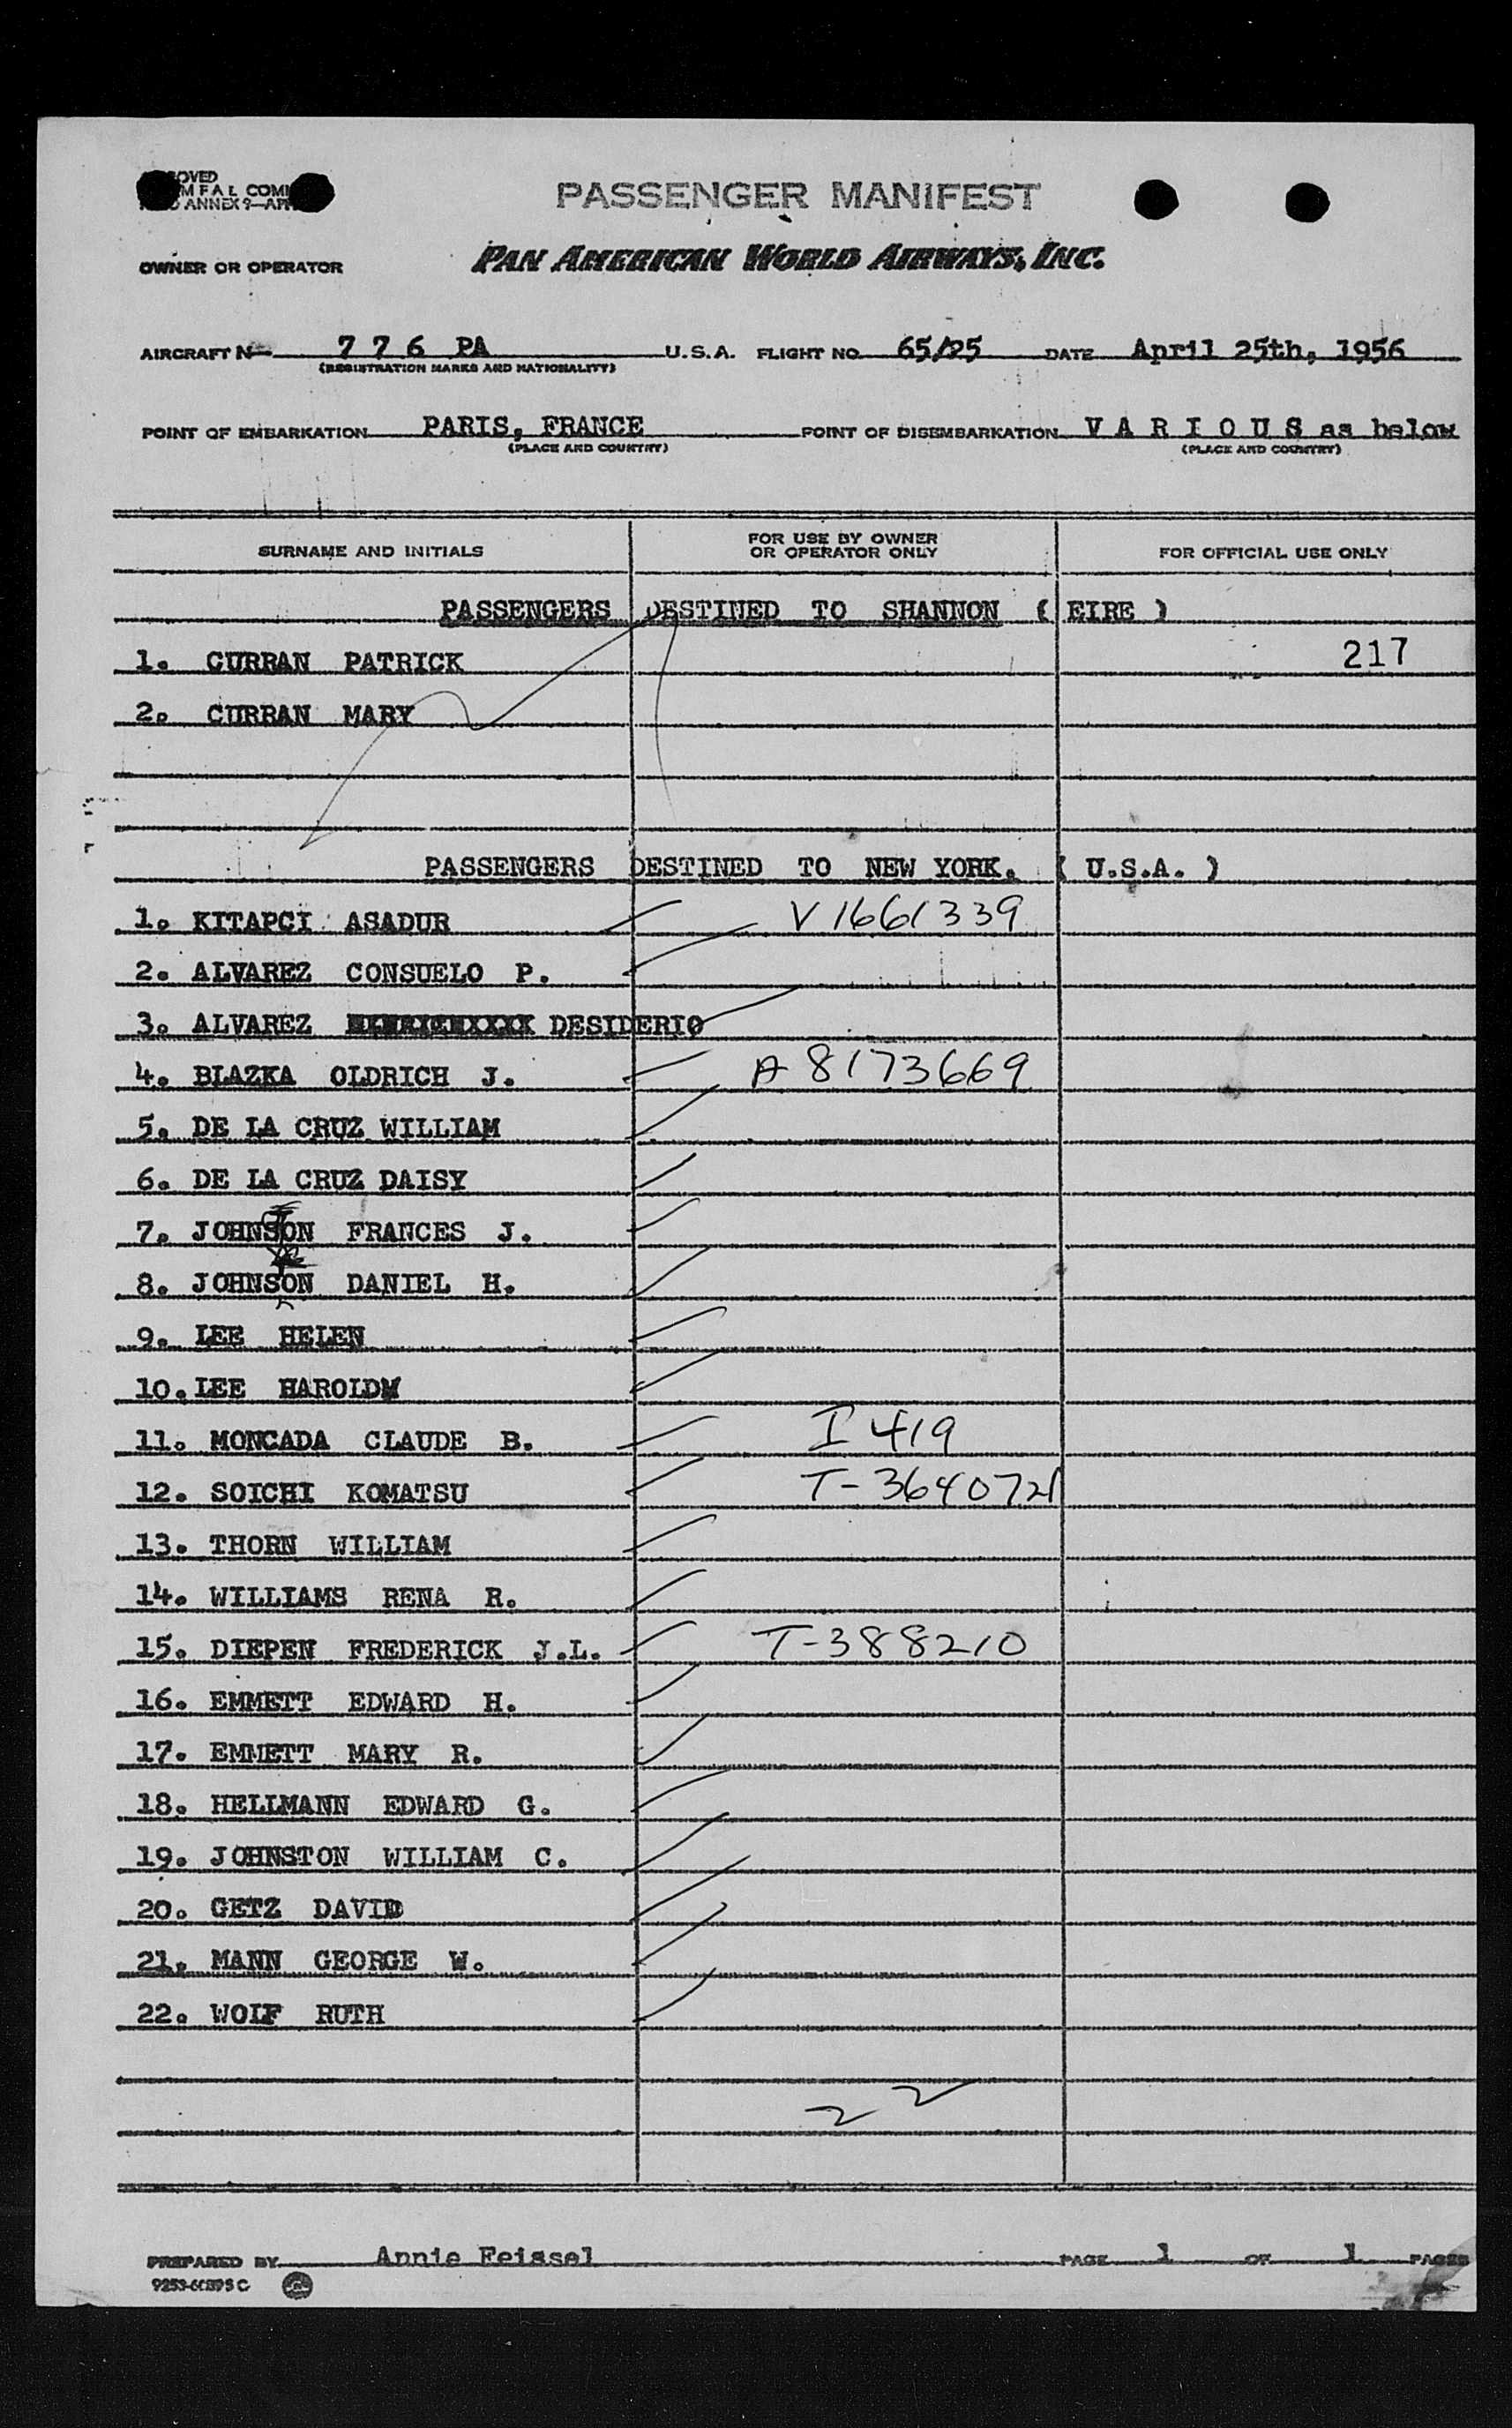 OVED
M F A L COMM
ANNEX 9—APR
PASSENGER MANIFEST
OWNER OR OPERATOR PAN AMERICAN WORLD AIRWAYS, INC.
AIRCRAFT No 7 7 6 PA U.S.A. FLIGHT NO. 65/25 DATE April 25th, 1956
(REGISTRATION MARKS AND NATIONALITY)
POINT OF EMBARKATION PARIS, FRANCE POINT OF DISEMBARKATION V A R I O U S as below
(PLACE AND COUNTRY) (PLACE AND COUNTRY)
SURNAME AND INITIALS FOR USE BY OWNER OR OPERATOR ONLY FOR OFFICIAL USE ONLY
PASSENGERS DESTINED TO SHANNON ( EIRE )
1. CURRAN PATRICK 217
2. CURRAN MARY
PASSENGERS DESTINED TO NEW YORK. ( U.S.A. )
1. KITAPCI ASADUR V 1661339
2. ALVAREZ CONSUELO P.
3. ALVAREZ DESIDERIO
4. BLAZKA OLDRICH J. A 8173669
5. DE LA CRUZ WILLIAM
6. DE LA CRUZ DAISY
7. JOHNSON FRANCES J.
8. JOHNSON DANIEL H.
9. LEE HELEN
10. LEE HAROLD
11. MONCADA CLAUDE B. I 419
12. SOICHI KOMATSU T-3640721
13. THORN WILLIAM
14. WILLIAMS RENA R.
15. DIEPEN FREDERICK J.L. T-388210
16. EMMETT EDWARD H.
17. EMMETT MARY R.
18. HELLMANN EDWARD G.
19. JOHNSTON WILLIAM C.
20. GETZ DAVID
21. MANN GEORGE W.
22. WOLF RUTH
22
PREPARED BY Annie Feissel PAGE 1 OF 1 PAGES